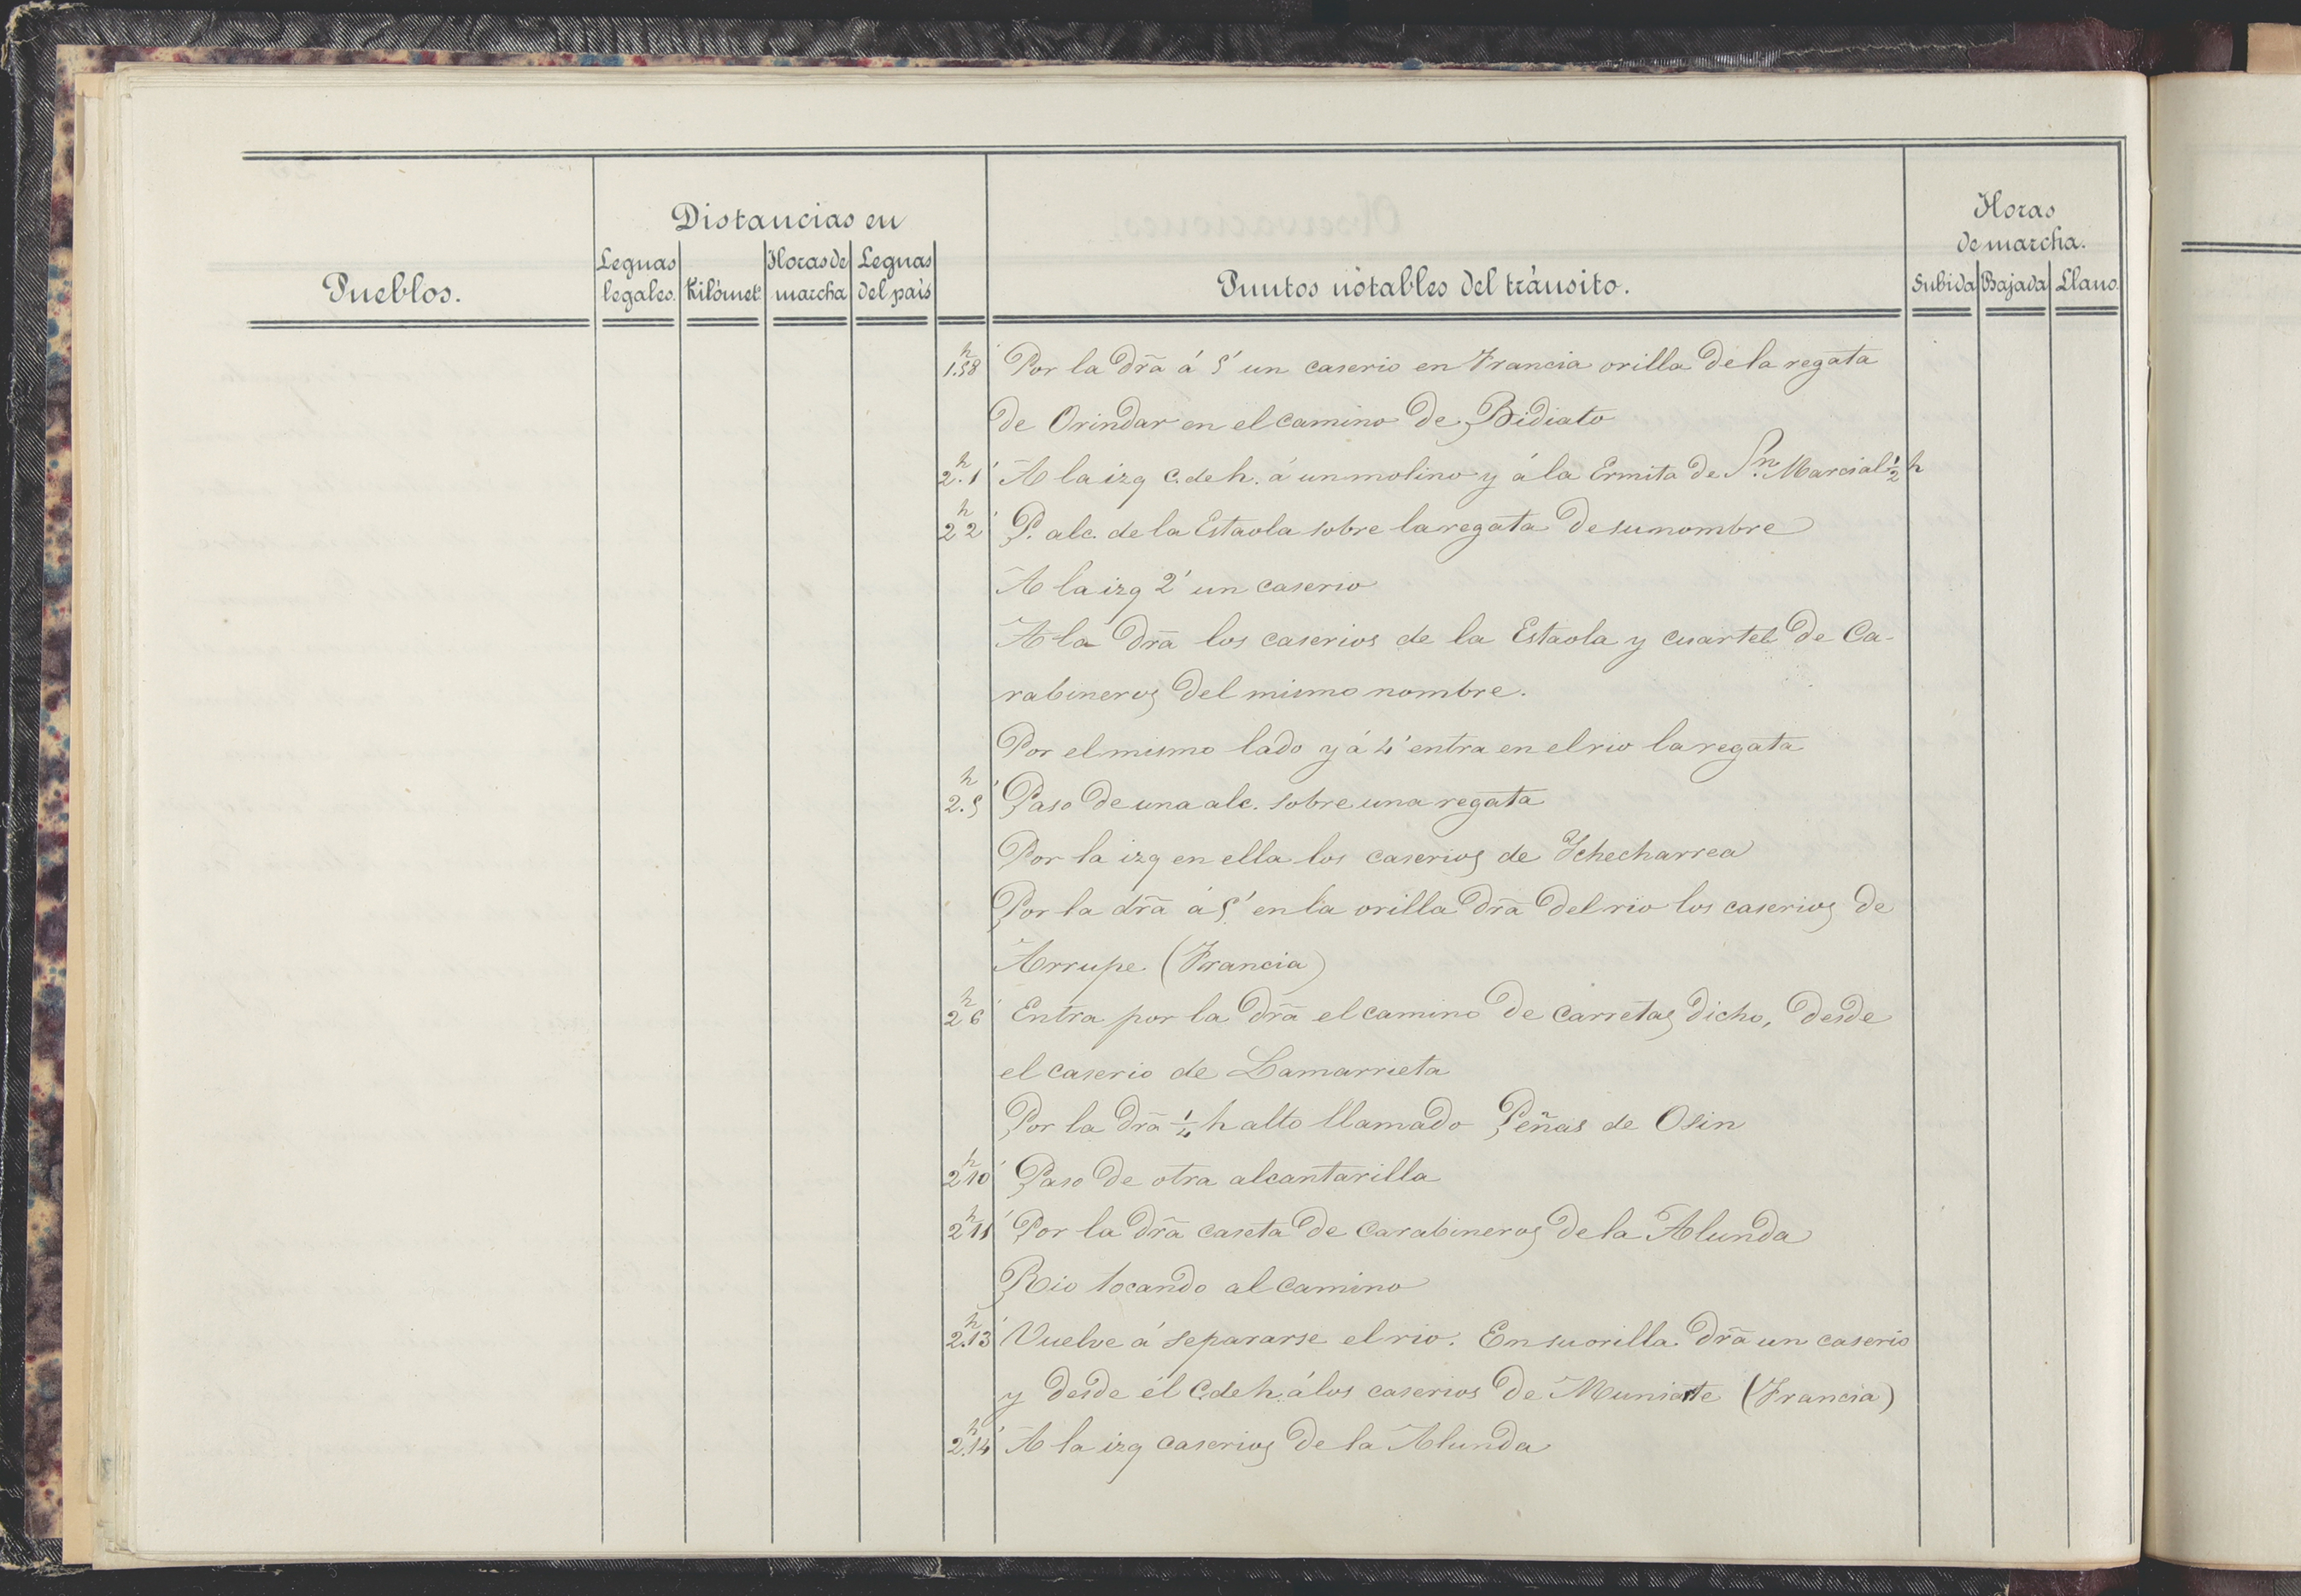 Distancias en
Horas
de marcha.
Pueblos.
Leguas legales.
Kilómets
Horas de marcha
Leguas del país
Puntos nótables del tránsito.
Subida
Bajada
Llano.
1.h58' Por la dr̃a á 5' un caserio en Francia orilla de la regata
de Orindar en el camino de Bidiato
2.h1' A la izq c. de h. á un molino y á la Ermita de Sn. Marcial 1/2 h
2h2' P. alc. de la Estaola sobre la regata de su nombre
A la izq 2' un caserio
A la dr̃a los caserios de la Estaola y cuartel de Ca-
rabineros del mismo nombre.
Por el mismo lado y á 4' entra en el rio la regata
2.h5' Paso de una alc. sobre una regata
Por la izq en ella los caserios de Ychecharrea
Por la dr̃a á 5' en la orilla dr̃a del rio los caserios de
Arrupe (Francia)
2h6' Entra por la dr̃a el camino de carretas dicho, desde
el caserio de Lamarrieta
Por la dr̃a 1/4 h alto llamado Peñas de Osin
2h10' Paso de otra alcantarilla
2h11' Por la dr̃a caseta de Carabineros de la Alunda
Rio tocando al camino
2.h13' Vuelve á separarse el rio. En su orilla dr̃a un caserio
y desde él c. de h. á los caserios de Muniarte (Francia)
2.h14' A la izq caserios de la Alunda